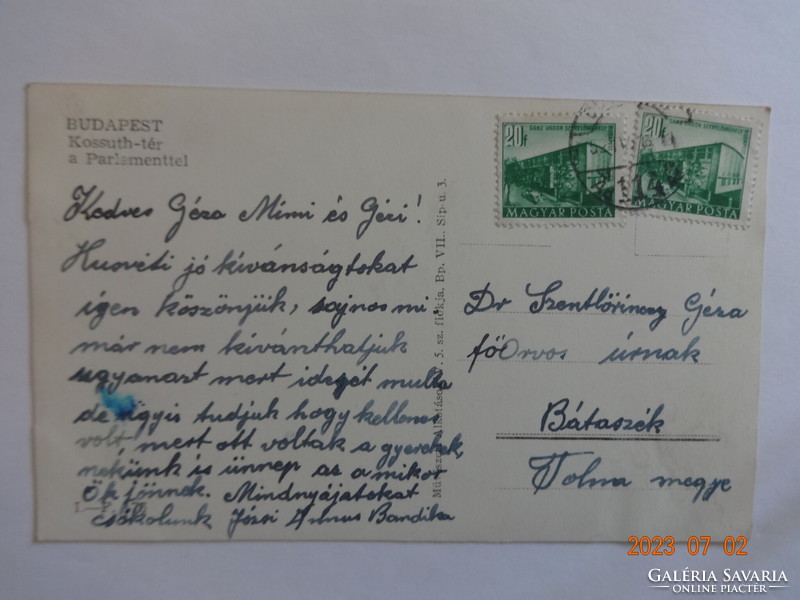 BUDAPEST
Kossuth-tér
a Parlamenttel
Kedves Géza Mimi és Géri!
Husvéti jó kívánságtokat
igen köszönjük, sajnos mi
már nem kívánthatjuk
ugyanazt mert idejét multa
de úgyis tudjuk hogy kellemes
volt, mert ott voltak a gyerekek,
nekünk is ünnep az a mikor
Ők jönnek. Mindnyájatokat
csókolunk Józsi Bandika
5. sz. fiókja, Bp. VII., Sip-u. 3.
20f
MAGYAR POSTA
20f
MAGYAR POSTA
Dr Szentlőrinczy Géza
főOrvos úrnak
Bátaszék
Tolna megye
2023 07 02
GALÉRIA SAVARIA
ONLINE PIACTÉR